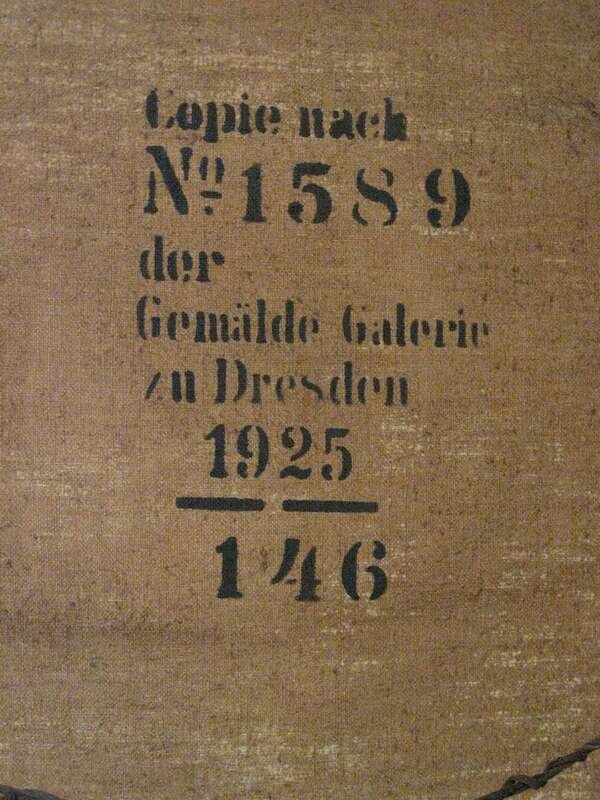 Copie nach
No 1589
der
Gemälde Galerie
zu Dresden
1925
146